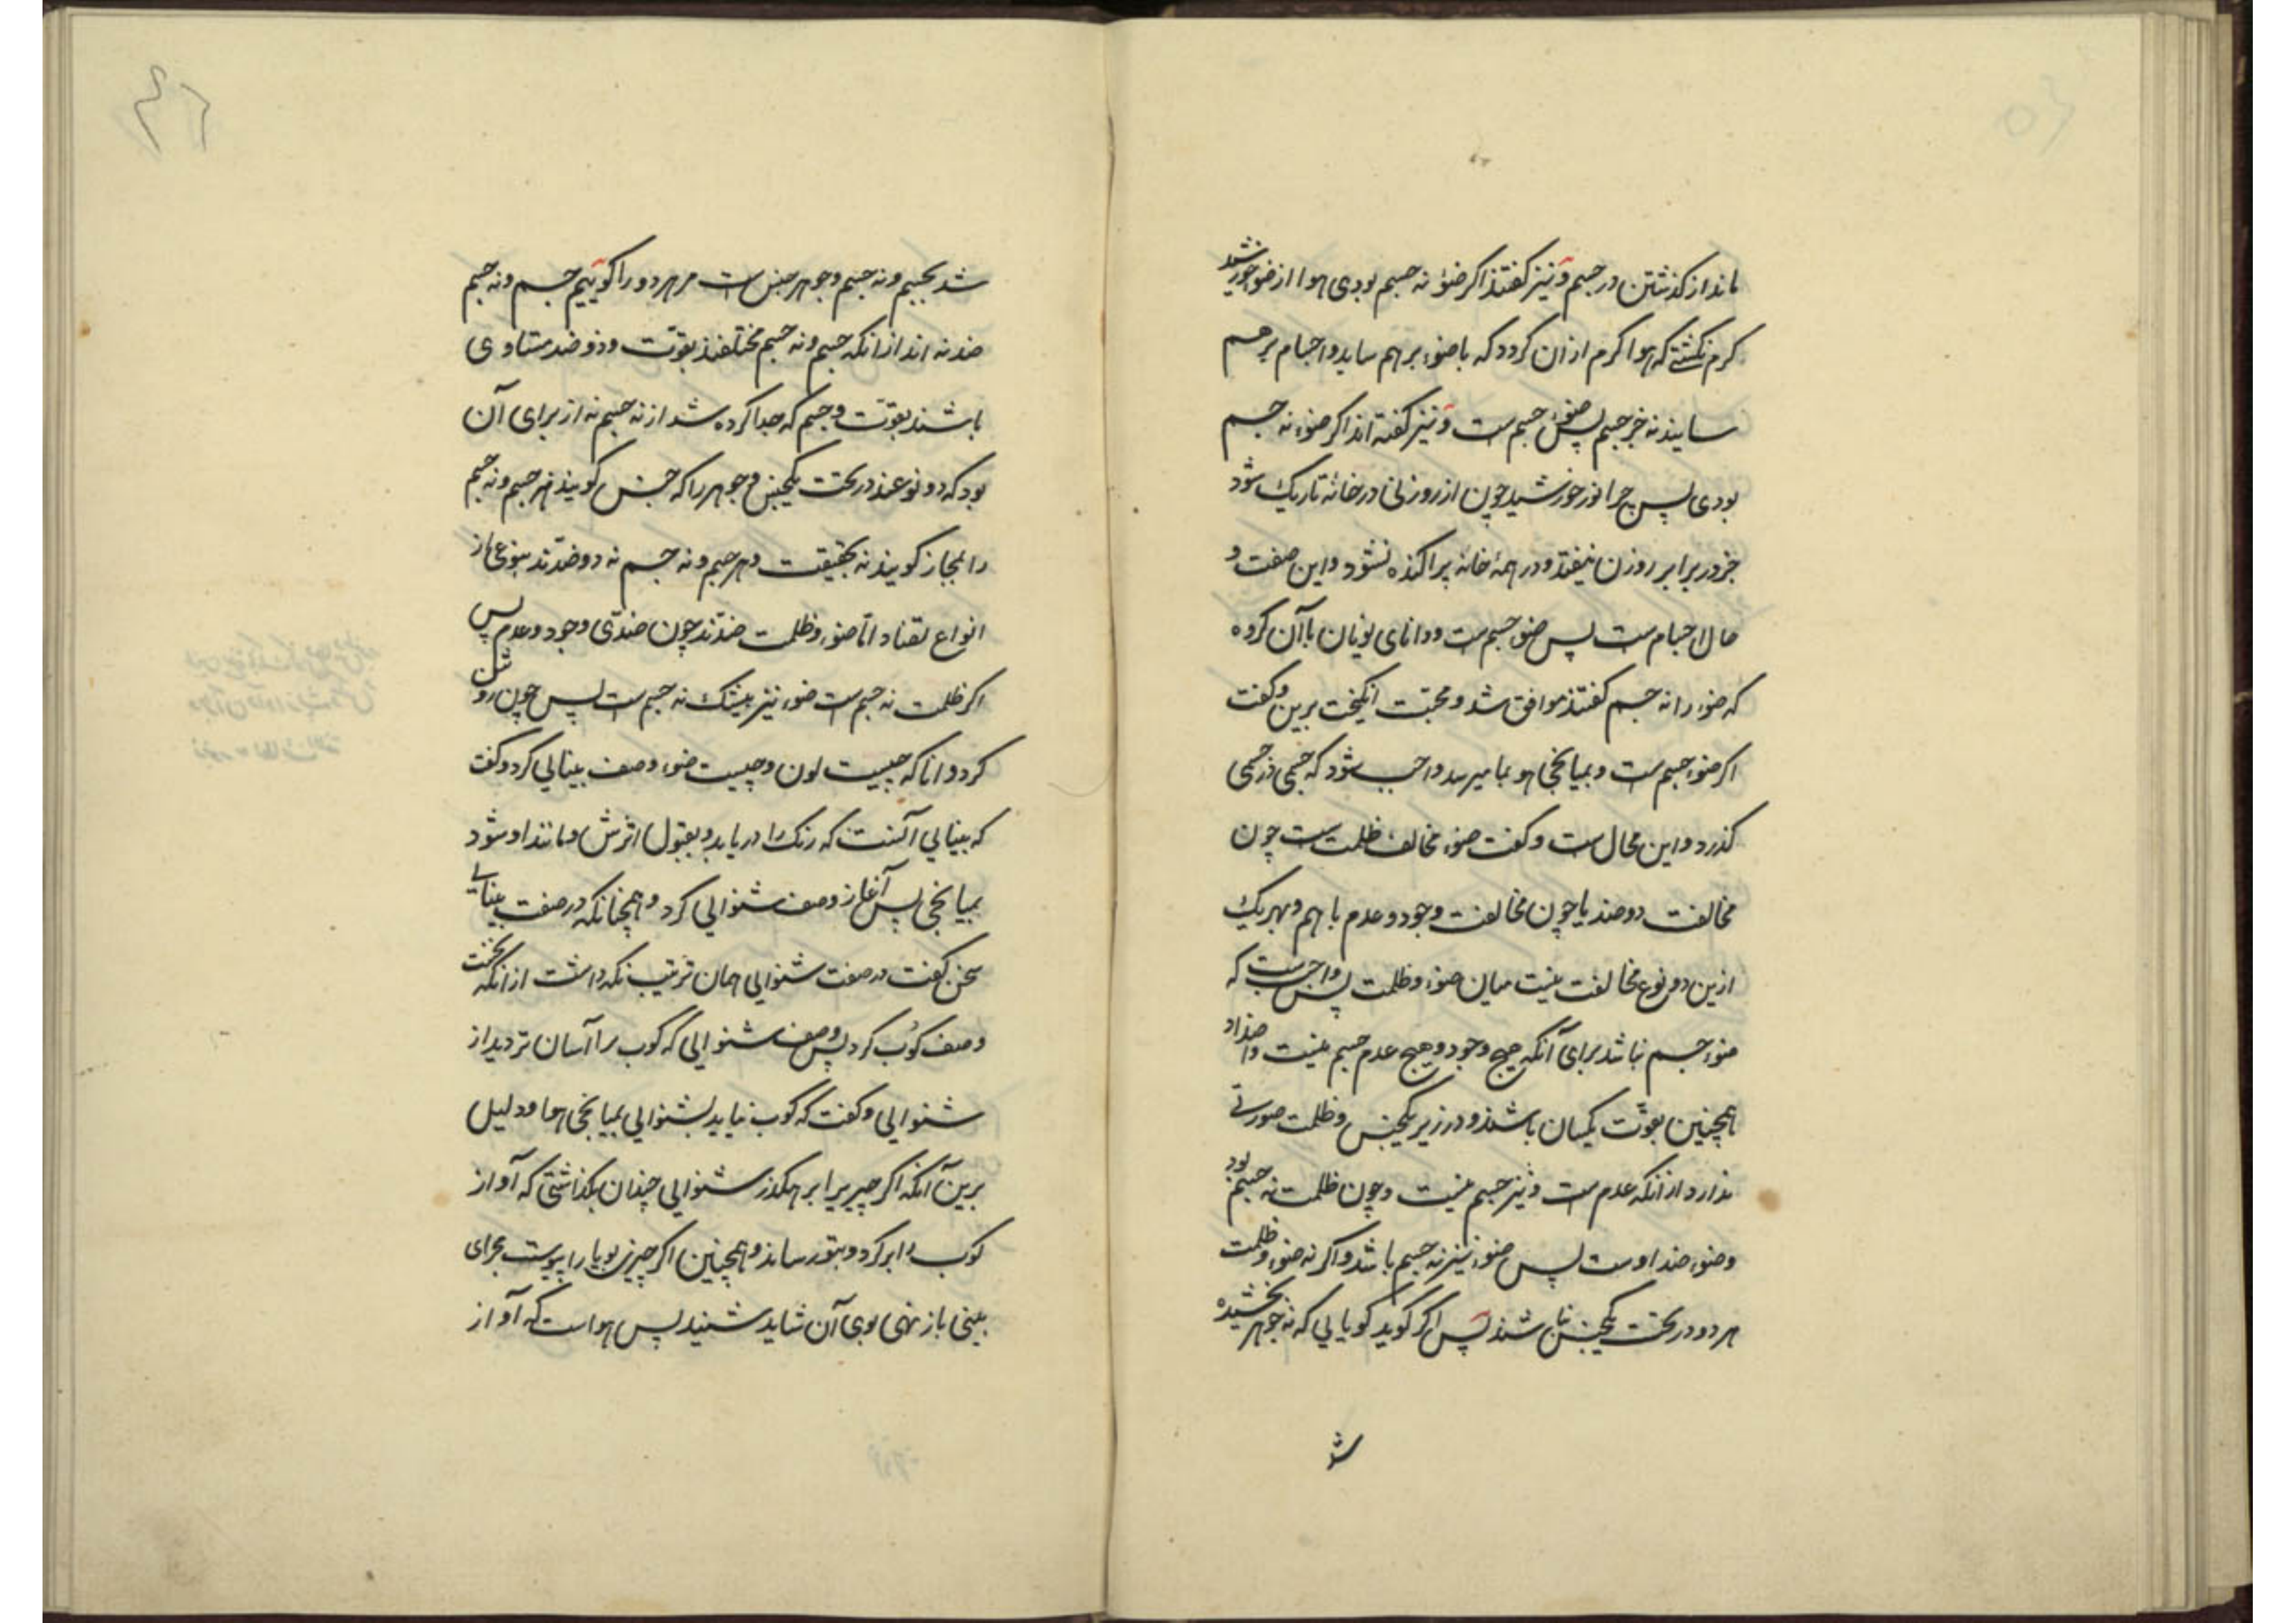 ماند از گذشتن در جسم و نیز گفتند اگر ضوء نه جسم بودی هوا از ضوء خورشید
گرم نگشتی که هوا گرم از آن گردد که با ضوء بر هم ساید و اجسام بر هم
سایند نه جز جسم پس ضوء جسم است و نیز گفته اند اگر ضوء نه جسم
بودی پس چرا نور خورشید چون از روزنی در خانهٔ تاریک شود
جز در برابر روزن نیفتد و در همهٔ خانه پراکنده نشود و این صفت و
حال اجسام است پس ضوء جسم است و دانای یونان با آن گروه
که ضوء را نه جسم گفتند موافق شد و محبت انگیخت برین و گفت
اگر ضوء جسم است و بمیانجی هوا بما میرسد واجب شود که جسمی در جسمی
گذرد و این محال است و گفت ضوء مخالف ظلمت است چون
مخالفت دو ضد یا چون مخالفت وجود و عدم با هم و بهر یک
ازین دو نوع مخالفت نیست میان ضوء و ظلمت پس واجب است که
ضوء جسم نباشد برای آنکه هیچ وجود و هیچ عدم جسم نیست و اضداد
همچنین بقوت یکسان باشند و در زیر یکجنس و ظلمت صورتی
ندارد از آنکه عدم است و نیز جسم نیست و چون ظلمت نه جسم بود
و ضوء ضد اوست پس ضوء نیز نه جسم باشد و اگر نه ضوء و ظلمت
هر دو در تحت یکجنس نباشند پس اگر گوید گویایی که نه جوهر بخشیده
شد بجسم و نه جسم و جوهر جنس است مر هر دو را گوییم جسم و نه جسم
ضد نه اند از آنکه جسم و نه جسم مختلفند بقوت و دو ضد متساوی
باشند بقوت و جسم که جدا کرده شد از نه جسم نه از برای آن
بود که دو نوعند در تحت یکجنس و جوهر را که جنس گویند مر جسم و نه جسم
را بمجاز گویند نه بحقیقت و هر جسم و نه جسم نه دو ضدند بنوعی از
انواع تضاد اما ضوء و ظلمت ضدند چون ضدی وجود و عدم پس
اگر ظلمت نه جسم است ضوء نیز بیشک نه جسم است پس چون روشن
کرد دانا که چیست لون و چیست ضوء وصف بینایی کرد و گفت
که بینایی آنست که رنگ را دریابد و بقبول اثرش و مانند او شود
بمیانجی پس آغاز وصف شنوایی کرد و همچنانکه در صفت بینایی
سخن گفت در صفت شنوایی همان ترتیب نگه داشت از آنکه نخست
وصف کوب کرد پس وصف شنوایی که کوب را آسان تر دید از
شنوایی و گفت که کوب نیاید بشنوایی بمیانجی هوا و دلیل
برین آنکه اگر چیز برابر رهگذر شنوایی چندان بگذاشتی که آواز
کوب را بر گرد و بتو رساند و همچنین اگر چیزی بویا را پیوست مجرای
بینی باز نهی بوی آن شاید شنید پس هواست که آواز
شد